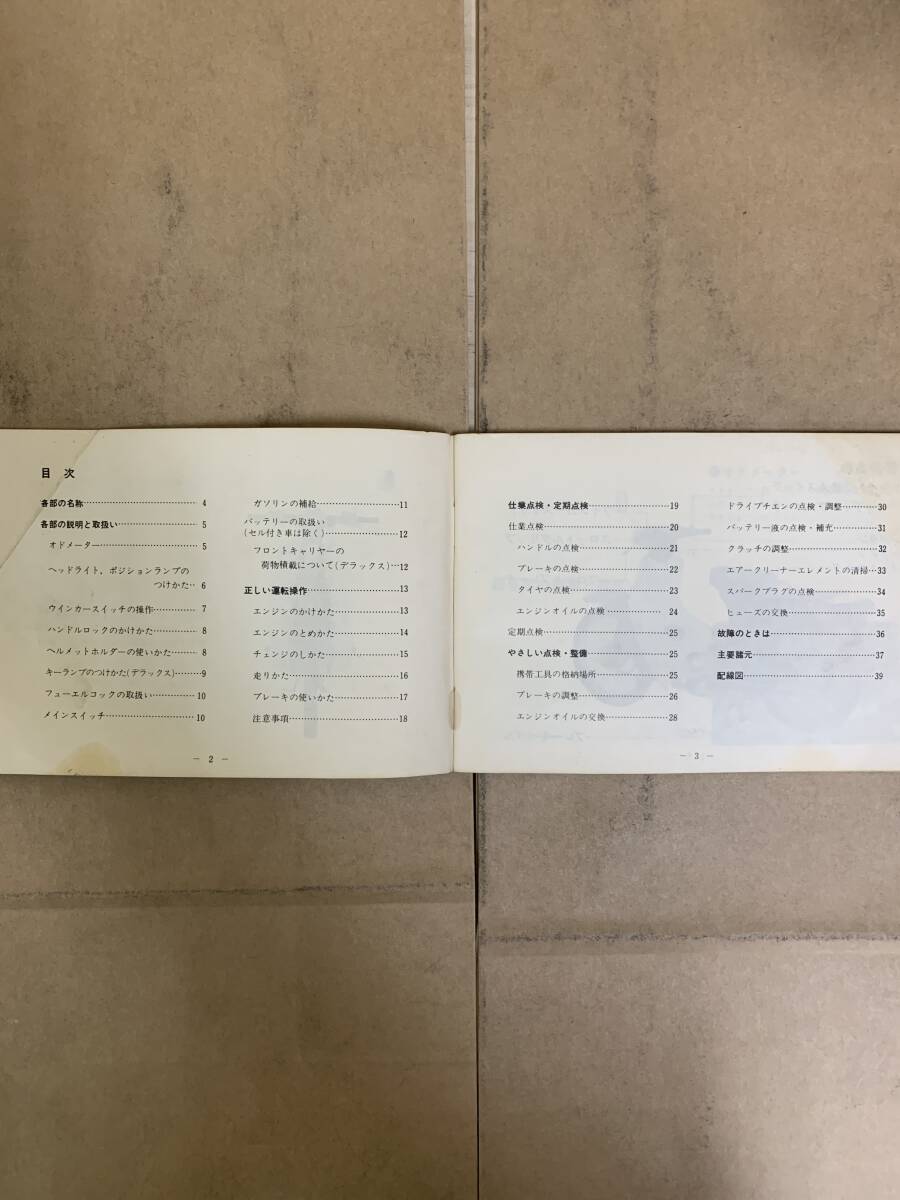 目 次
各部の名称…………………… 4
各部の説明と取扱い…………………… 5
オドメーター…………………… 5
ヘッドライト、ポジションランプの
つけかた‥ 6
ウインカースイッチの操作………… 7
ハンドルロックのかけかた………… 8
ヘルメットホルダーの使いかた…… 8
キーランプのつけかた(デラックス)……9
フューエルコックの取扱い………… 10
メインスイッチ…………………… 10
ガソリンの補給……………………11
バッテリーの取扱い
(セル付き車は除く)………………12
フロントキャリヤーの
荷物積載について(デラックス)…12
正しい運転操作……………………13
エンジンのかけかた………………13
エンジンのとめかた………………14
チェンジのしかた…………………15
走りかた……………………………16
ブレーキの使いかた………………17
注意事項……………………………18
－ 2 －
仕業点検・定期点検………………19
仕業点検……………………………20
ハンドルの点検……………………21
ブレーキの点検……………………22
タイヤの点検………………………23
エンジンオイルの点検…………… 24
定期点検……………………………25
やさしい点検・整備………………25
携帯工具の格納場所………………25
ブレーキの調整……………………26
エンジンオイルの交換……………28
ドライブチエンの点検・調整………30
バッテリー液の点検・補充…………31
クラッチの調整……………………32
エアークリーナーエレメントの清掃…33
スパークプラグの点検……………34
ヒューズの交換……………………35
故障のときは………………………36
主要諸元……………………………37
配線図………………………………39
－ 3 －